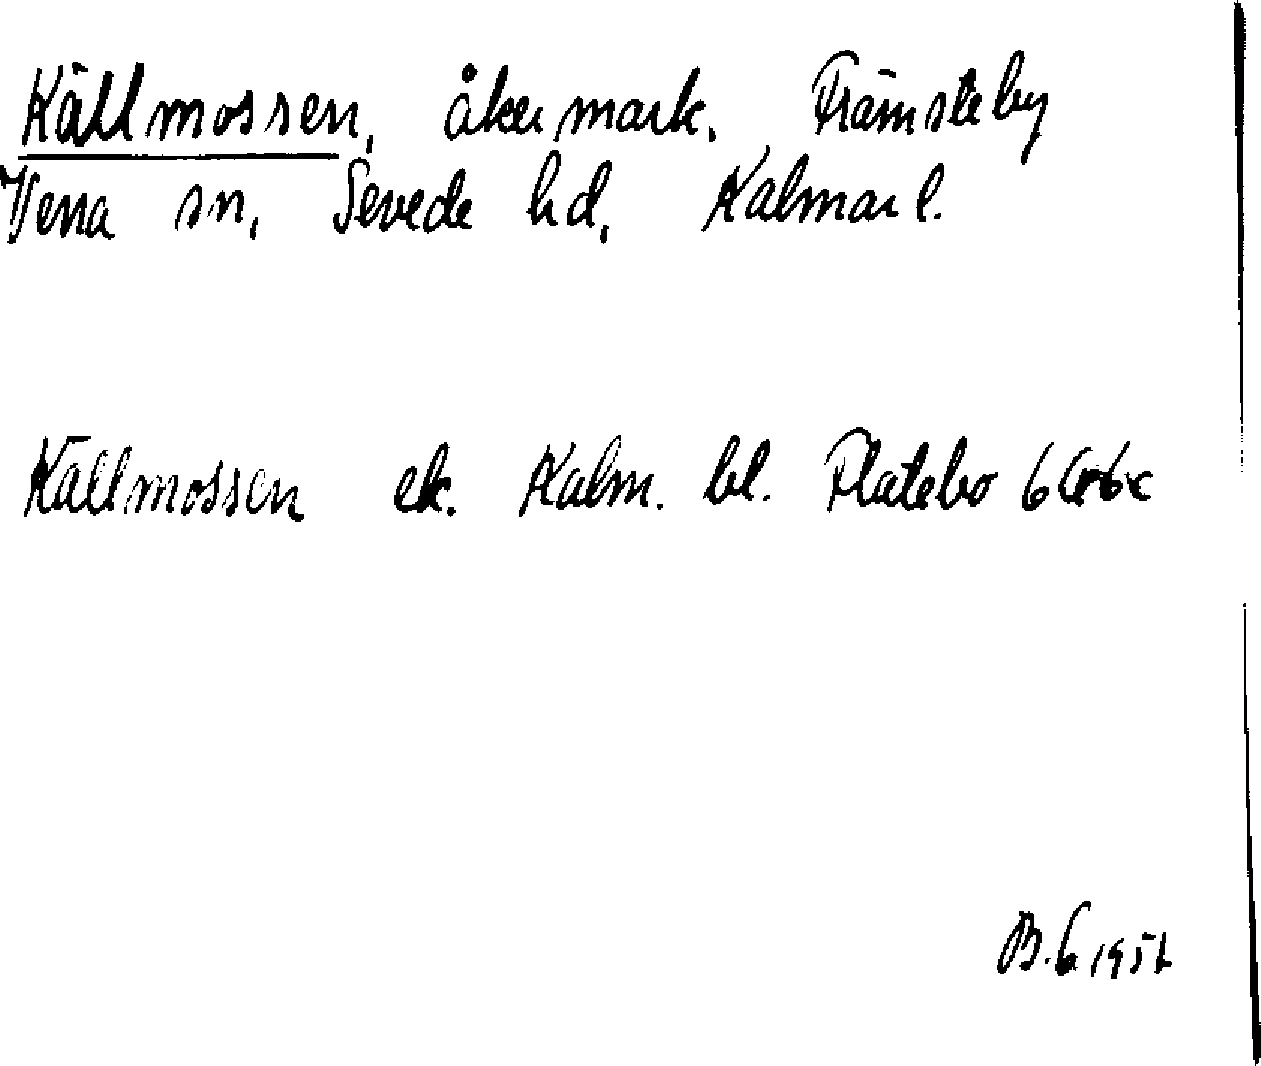 Källmossen, åkermark. Främsteby
Vena sn, Sevede hd, Kalmar l.
Källmossen ek. Kalm. bl. Flatebo
B.G 1957